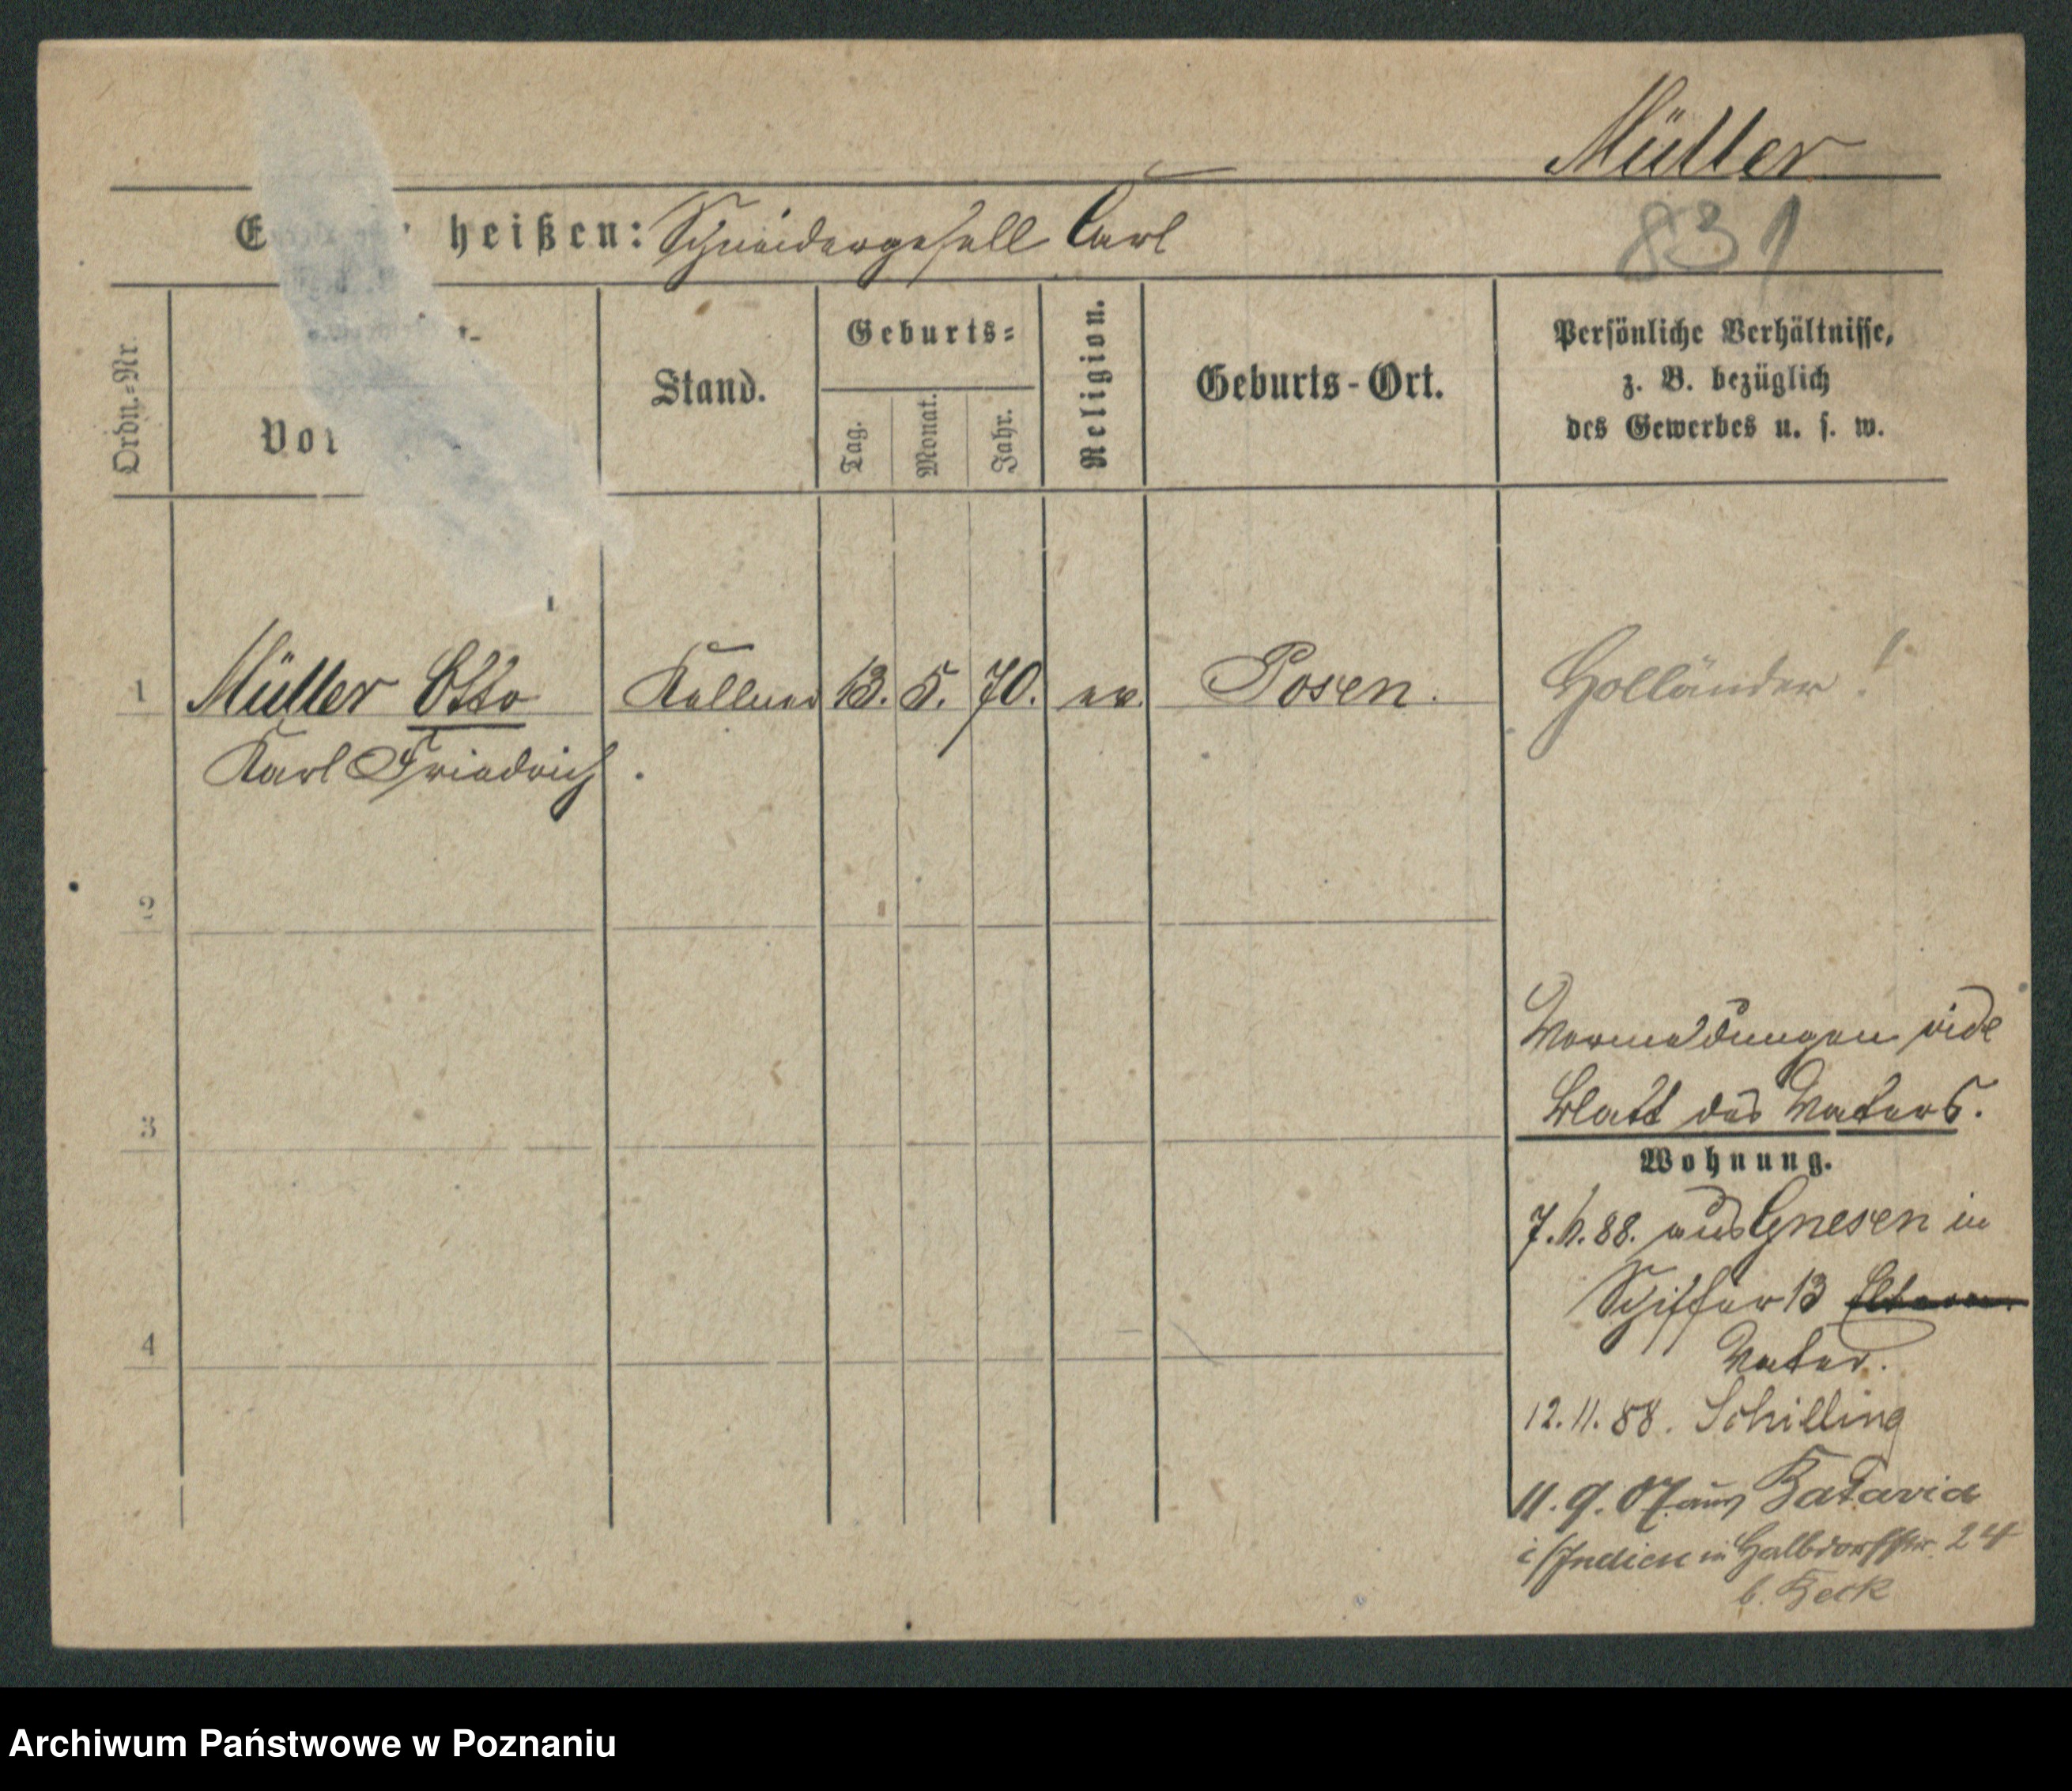 Müller
831
heißen: Schneidergesell Carl
Ordn.=Nr.
Vor
Stand.
Geburts=
Tag.
Monat.
Jahr.
Religion.
Geburts-Ort.
Persönliche Verhältnisse,
z. B. bezüglich
des Gewerbes u. s. w.
1 Müller Otto Kellner 13. 5. 70. ev. Posen. Holländer!
Karl Friedrich.
2
Vormeldungen vide
Blatt des Vaters.
3
Wohnung.
7. 88. aus Gnesen in
Schiffer 13
4
Vater.
12. 11. 88. Schilling
11. 9. 07. aus Batavia
i/Indien in Halbdorfstr. 24
b. Beck
Archiwum Państwowe w Poznaniu